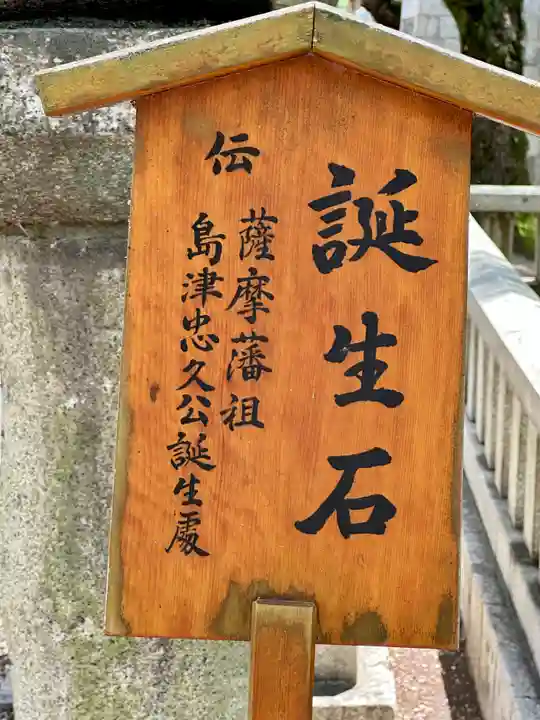 誕生石
伝
薩摩藩祖
島津忠久公誕生處